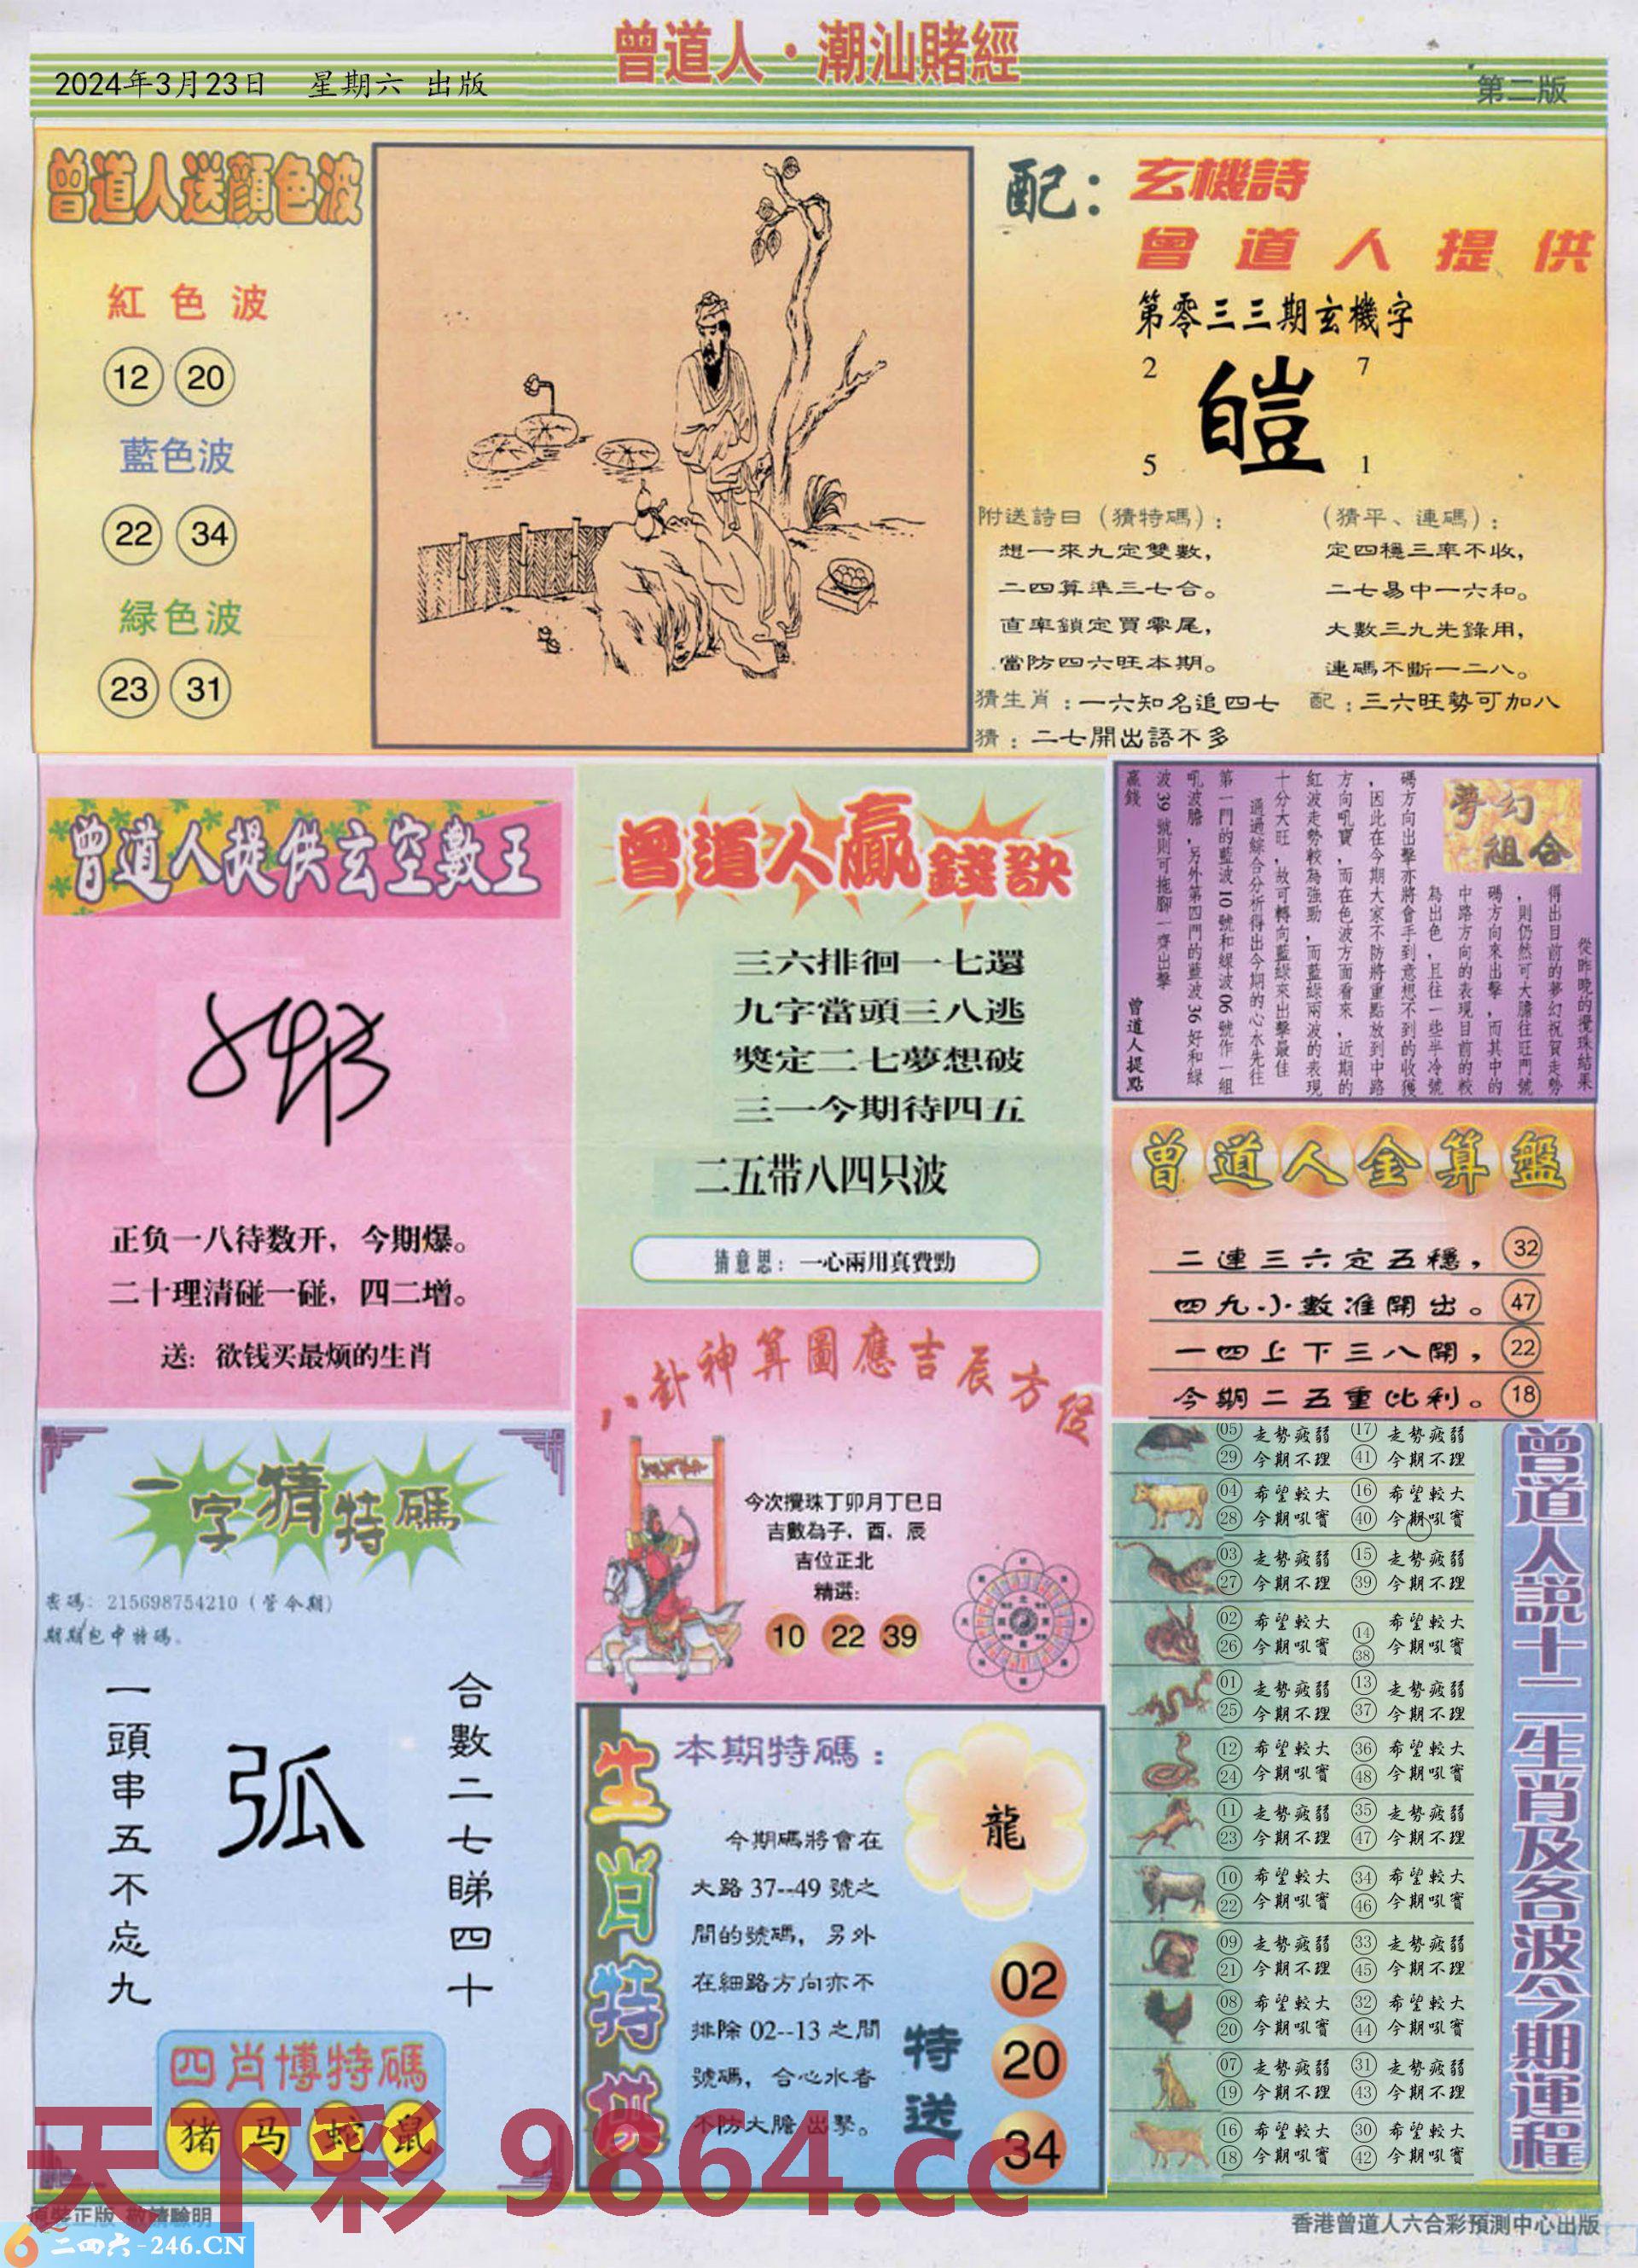 曾道人·潮汕賭經
2024年3月23日 星期六 出版
第二版
曾道人送顔色波
紅色波
12 20
藍色波
22 34
緑色波
23 31
配：
玄機詩
曾道人提供
第零三三期玄機字
2 7
皚
5 1
附送詩日（猜特碼）：
想一來九定雙數，
二四算準三七合。
直率鎖定買零尾，
當防四六旺本期。
（猜平、連碼）：
定四穩三率不收，
二七易中一六和。
大數三九先錄用，
連碼不斷一二八。
猜生肖：一六知名追四七
配：三六旺勢可加八
猜：二七開出語不多
曾道人提供玄空數王
正负一八待数开，今期爆。
二十理清碰一碰，四二增。
送：欲钱买最烦的生肖
曾道人贏錢訣
三六排徊一七還
九字當頭三八逃
獎定二七夢想破
三一今期待四五
二五带八四只波
猜意思：一心兩用真費勁
夢幻組合
從昨晚的攪珠結果
得出目前的夢幻祝賀走勢
，則仍然可大膽往旺門號
碼方向來出擊，而其中的
中路方向的表現目前的較
為出色，且往一些半冷號
碼方向出擊亦將會手到意想不到的收獲
，因此在今期大家不防將重點放到中路
方向吼寶，而在色波方面看來，近期的
紅波走勢較為強勁，而藍綠兩波的表現
十分大旺，故可轉向藍綠來出擊最佳
通過綜合分析得出今期的心水先往
第一門的藍波10號和綠波06號作一組
吼波膽，另外第四門的藍波36好和綠
波39號則可拖腳一齊出擊
贏錢
曾道人提點
曾道人金算盤
二連三六定五穩，32
四九小數准開出。47
一四上下三八開，22
今期二五重比利。18
一字猜特碼
密碼：215698754210（管今期）
期期包中特碼。
合數二七睇四十
弧
一頭串五不忘九
四肖博特碼
猪 马 蛇 鼠
八卦神算圖應吉辰方從
今次攪珠丁卯月丁巳日
吉數為子、酉、辰
吉位正北
精選：
10 22 39
生肖特供
本期特碼：
龍
今期碼將會在
大路37--49號之
間的號碼，另外
在細路方向亦不
排除02--13之間
號碼，合心水者
不防大膽出擊。
特送
02
20
34
曾道人說十二生肖及各波今期運程
05 走勢疲弱 17 走勢疲弱
29 今期不理 41 今期不理
04 希望較大 16 希望較大
28 今期吼實 40 今期吼實
03 走勢疲弱 15 走勢疲弱
27 今期不理 39 今期不理
02 希望較大 14 希望較大
26 今期吼實 38 今期吼實
01 走勢疲弱 13 走勢疲弱
25 今期不理 37 今期不理
12 希望較大 36 希望較大
24 今期吼實 48 今期吼實
11 走勢疲弱 35 走勢疲弱
23 今期不理 47 今期不理
10 希望較大 34 希望較大
22 今期吼實 46 今期吼實
09 走勢疲弱 33 走勢疲弱
21 今期不理 45 今期不理
08 希望較大 32 希望較大
20 今期吼實 44 今期吼實
07 走勢疲弱 31 走勢疲弱
19 今期不理 43 今期不理
16 希望較大 30 希望較大
18 今期吼實 42 今期吼實
天下彩 9864.cc
原裝正版 敬請驗明
二四六-246.CN
香港曾道人六合彩預測中心出版